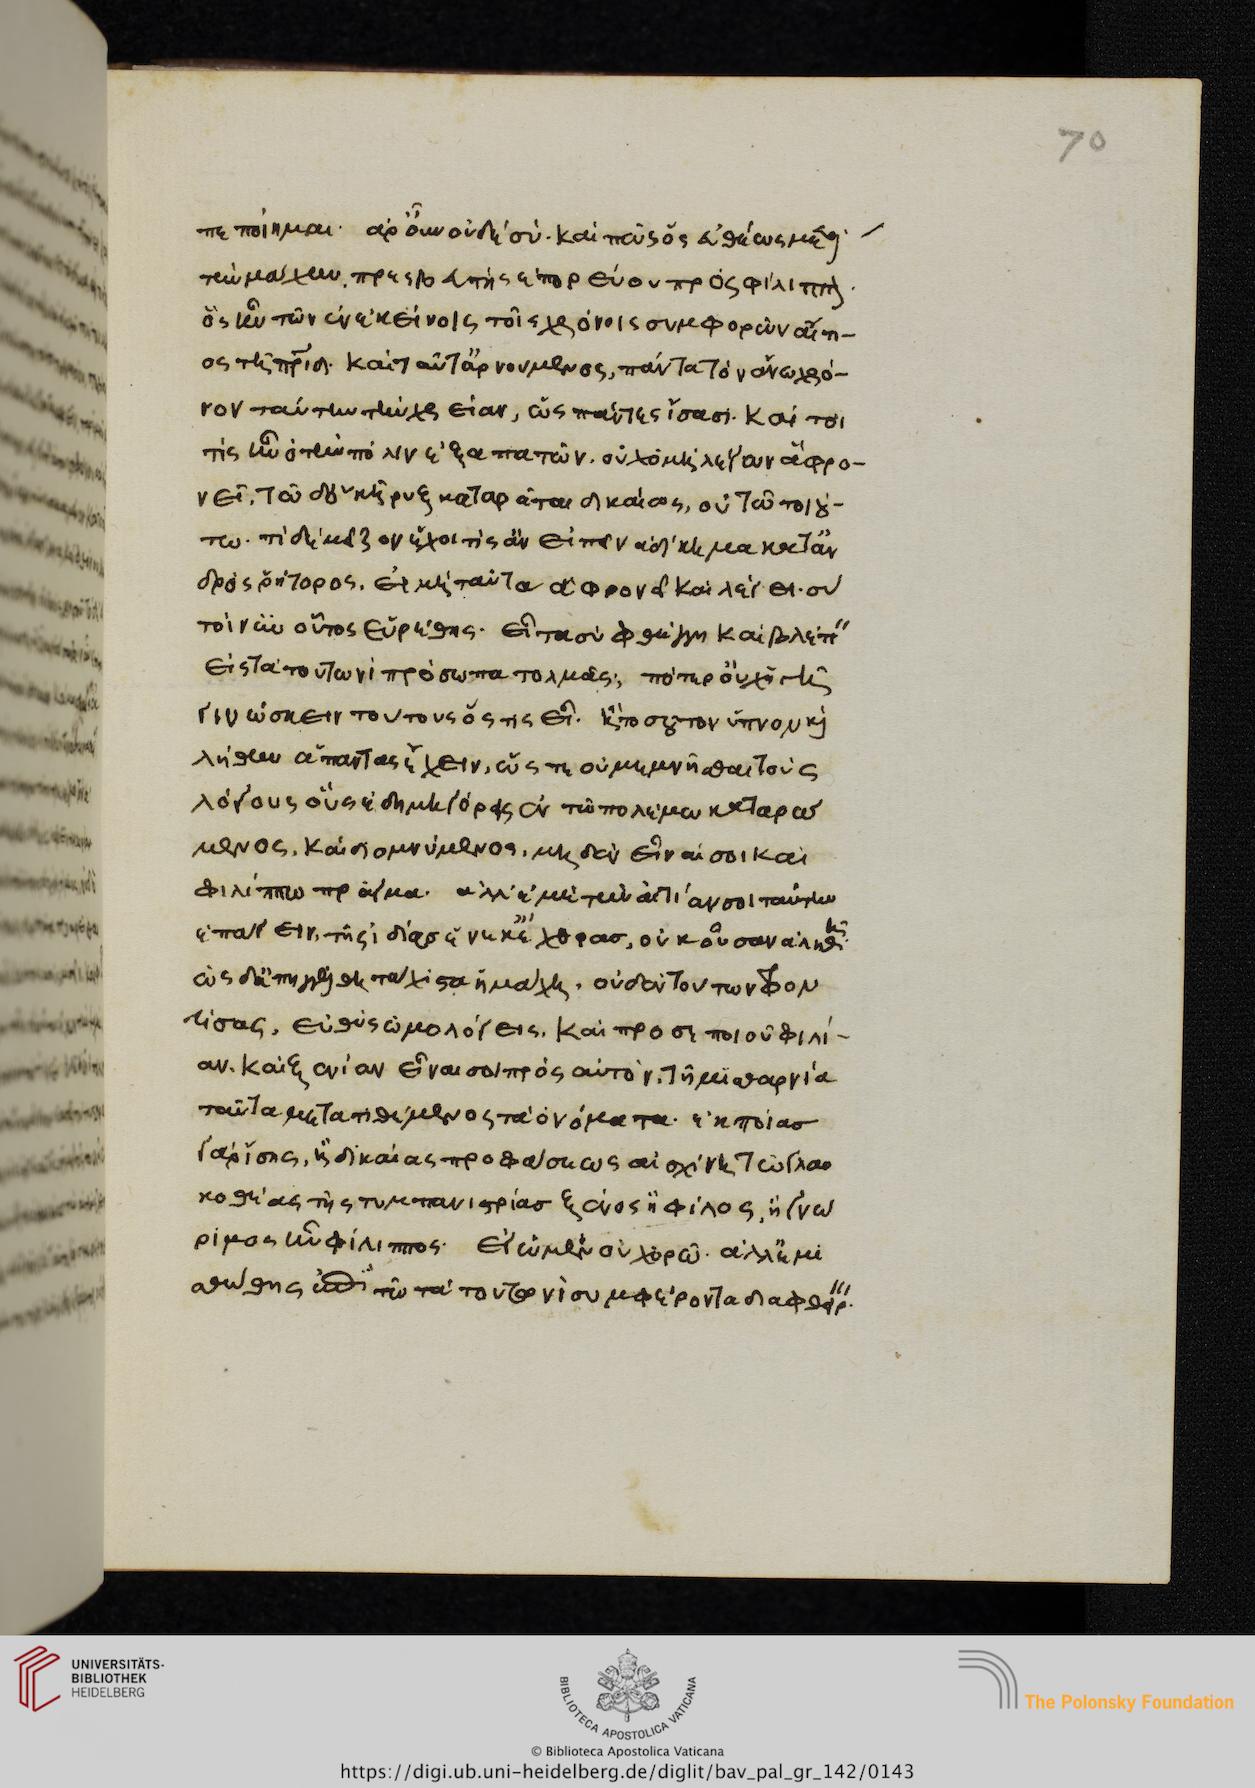 70
πεποίημαι. ἀρ' οὖν οὐδὲ σύ. καὶ πῶς ὃς εὐθέως μετὰ
τὴν μάχην, πρεσβευτὴς ἐπορεύου πρὸς φίλιππον.
ὃς ἦν τῶν ἐν ἐκείνοις τοῖς χρόνοις συμφορῶν αἴτι-
ος τῆ πατρίδι. καὶ ταῦτ' ἀρνούμενος, πάντα τὸν ἄνω χρό-
νον ταύτην τὴν χρείαν, ὡς πάντες ἴσασι. καί τοι
τίς ἦν ὁ τὴν πόλιν ἐξαπατῶν. οὐχ ὁ μὴ λέγων ἃ φρο-
νεῖ. τῶ δ' ὁ κῆρυξ καταρᾶται δικαίως, οὐ τῶ τοιού-
τω. τί δὲ μεῖζον ἔχοι τὶς ἂν εἰπεῖν ἀδίκημα κατ' ἀν
δρὸς ῥήτορος. εἰ μὴ ταῦτα ἃ φρονεῖ καὶ λέγει. σὺ
τοίνυν οὗτος εὑρέθης. εἶτα σὺ φθέγγη καὶ βλέπειν
εἰς τὰ τούτωνὶ πρόσωπα τολμᾶς; πότερ' οὐχ ἡγῆ
γινώσκειν τούτους ὅστις εἶ. ἢ τοσοῦτον ὕπνον καὶ
λήθην ἅπαντας ἔχειν, ὥστε οὐ μεμνῆσθαι τοὺς
λόγους οὓς ἐδημηγόρεις ἐν τῶ πολέμω καταρώ
μενος, καὶ διομνύμενος, μηδὲν εἶναι σοι καὶ
φιλίππω πρᾶγμα. ἀλλ' ἐμὲ τὴν αἰτίαν σοι ταύτην
ἐπάγειν, τῆς ἰδίας ἕνεκ' ἔχθρας, οὐκ οὖσαν ἀληθῆ.
ὡς δ' ἀπηγγέλθη τάχιστα ἡ μάχη. οὐδὲν τούτων φρον
τίσας, εὐθὺς ὡμολόγεις, καὶ προσεποιοῦ φιλί-
αν. καὶ ξενίαν εἶναι σοι πρὸς αὐτόν. τῆ μισθαρνία
ταῦτα μετατιθέμενος τὰ ὀνόματα. ἐκ ποίας
γὰρ ἴσης, ἢ δικαίας προφάσεως αἰσχίνη τῶ γλαυ
κοθέας τῆς τυμπανιστρίας ξένος ἢ φίλος, ἢ γνώ
ριμος ἦν φίλιππος. ἐγὼ μὲν οὐχ ὁρῶ. ἀλλ' ἐμι
σθώθης ἐπὶ τῶ τὰ τουτωνὶ συμφέροντα διαφθείρειν.
UNIVERSITÄTS-
BIBLIOTHEK
HEIDELBERG
BIBLIOTECA APOSTOLICA VATICANA
The Polonsky Foundation
© Biblioteca Apostolica Vaticana
https://digi.ub.uni-heidelberg.de/diglit/bav_pal_gr_142/0143